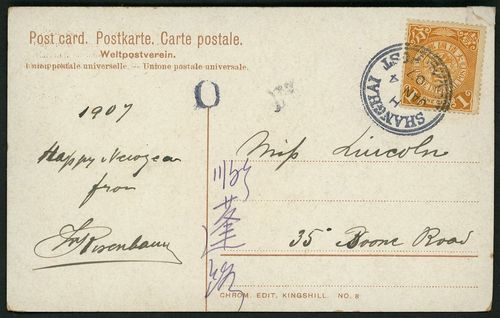 Post card. Postkarte. Carte postale.
Weltpostverein.
Union postale universelle. — Unione postale universale.
1907
Happy Newyear
from
Rosenbaum
O
SHANGHAI
JAN
07
1
Miss Lincoln
35 Boone Road
蓬
路
CHROM. EDIT, KINGSHILL. NO. 8